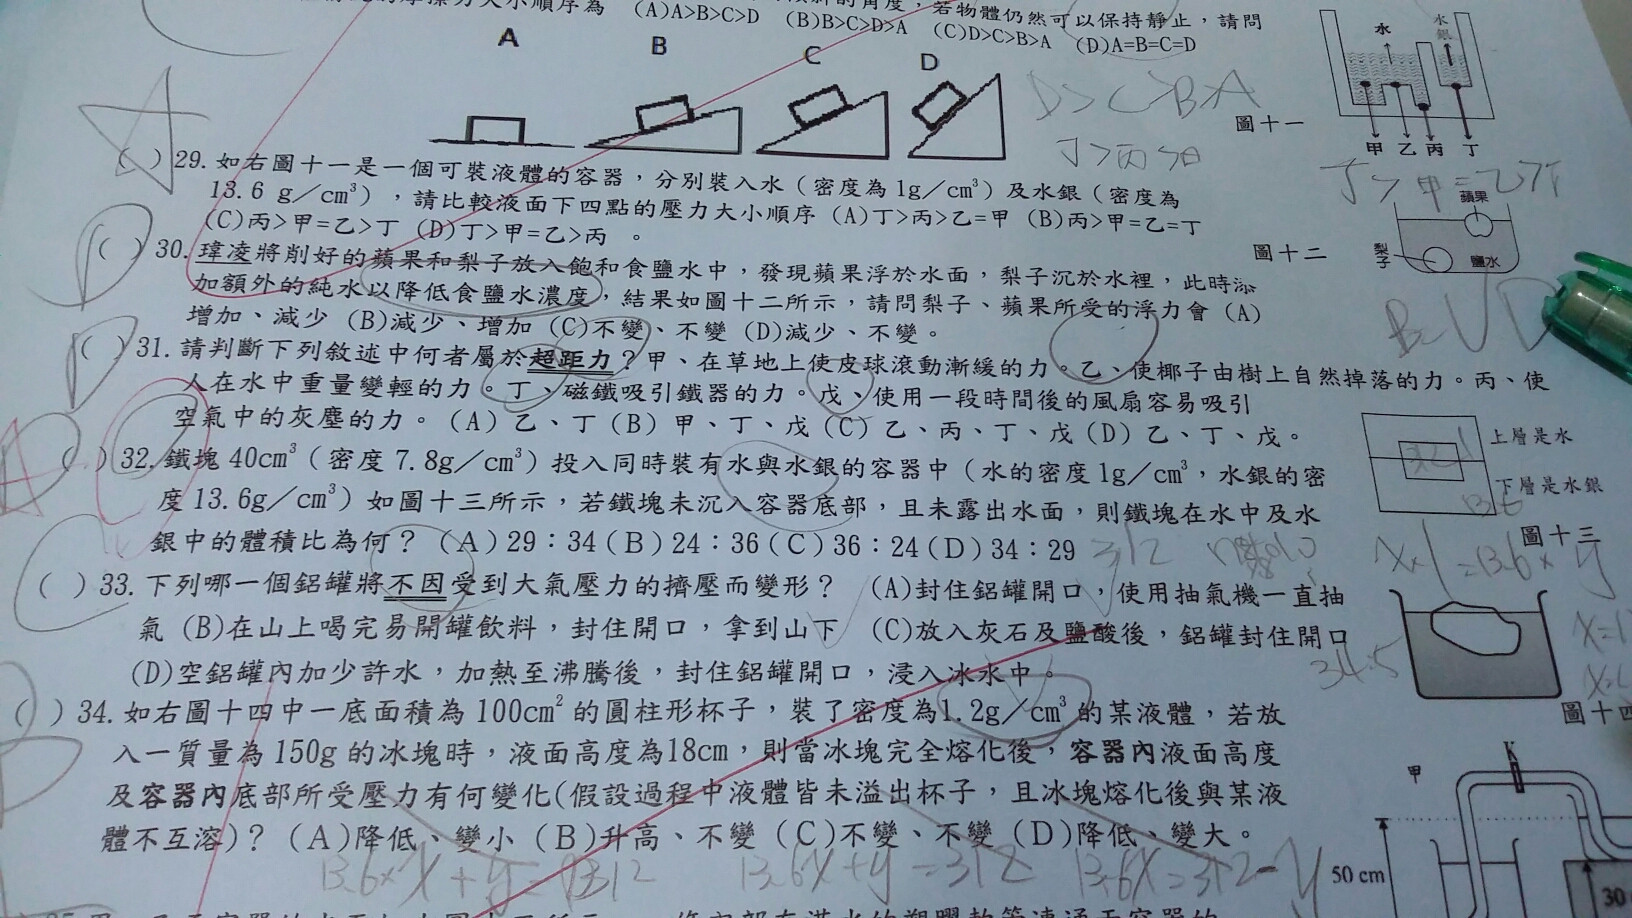 (A)A>B>C>D (B)B>C>D>A (C)D>C>B>A (D)A=B=C=D
若物體仍然可以保持靜止，請問
A B C D
D>C>B>A
水
水銀
甲 乙 丙 丁
圖十一
( )29.如右圖十一是一個可裝液體的容器，分別裝入水（密度為1g／cm³）及水銀（密度為
13.6 g／cm³），請比較液面下四點的壓力大小順序 (A)丁>丙>乙=甲 (B)丙>甲=乙=丁
(C)丙>甲=乙>丁 (D)丁>甲=乙>丙 。
蘋果
梨子
鹽水
圖十二
( )30.瑋凌將削好的蘋果和梨子放入飽和食鹽水中，發現蘋果浮於水面，梨子沉於水裡，此時添
加額外的純水以降低食鹽水濃度，結果如圖十二所示，請問梨子、蘋果所受的浮力會 (A)
增加、減少 (B)減少、增加 (C)不變、不變 (D)減少、不變。
( )31.請判斷下列敘述中何者屬於超距力？甲、在草地上使皮球滾動漸緩的力。乙、使椰子由樹上自然掉落的力。丙、使
人在水中重量變輕的力。丁、磁鐵吸引鐵器的力。戊、使用一段時間後的風扇容易吸引
空氣中的灰塵的力。(A) 乙、丁 (B) 甲、丁、戊 (C) 乙、丙、丁、戊 (D) 乙、丁、戊。
上層是水
下層是水銀
13.6
圖十三
( )32.鐵塊 40cm³（密度 7.8g／cm³）投入同時裝有水與水銀的容器中（水的密度 1g／cm³，水銀的密
度 13.6g／cm³）如圖十三所示，若鐵塊未沉入容器底部，且未露出水面，則鐵塊在水中及水
銀中的體積比為何？ (A) 29：34 (B) 24：36 (C) 36：24 (D) 34：29
312
( )33.下列哪一個鋁罐將不因受到大氣壓力的擠壓而變形？ (A)封住鋁罐開口，使用抽氣機一直抽
氣 (B)在山上喝完易開罐飲料，封住開口，拿到山下 (C)放入灰石及鹽酸後，鋁罐封住開口
(D)空鋁罐內加少許水，加熱至沸騰後，封住鋁罐開口，浸入冰水中。
圖十四
( )34.如右圖十四中一底面積為 100cm² 的圓柱形杯子，裝了密度為1.2g／cm³ 的某液體，若放
入一質量為 150g 的冰塊時，液面高度為18cm，則當冰塊完全熔化後，容器內液面高度
及容器內底部所受壓力有何變化(假設過程中液體皆未溢出杯子，且冰塊熔化後與某液
體不互溶)？ (A)降低、變小 (B)升高、不變 (C)不變、不變 (D)降低、變大。
13.6X+y=312 13.6X=312-y
甲
K
50 cm
30